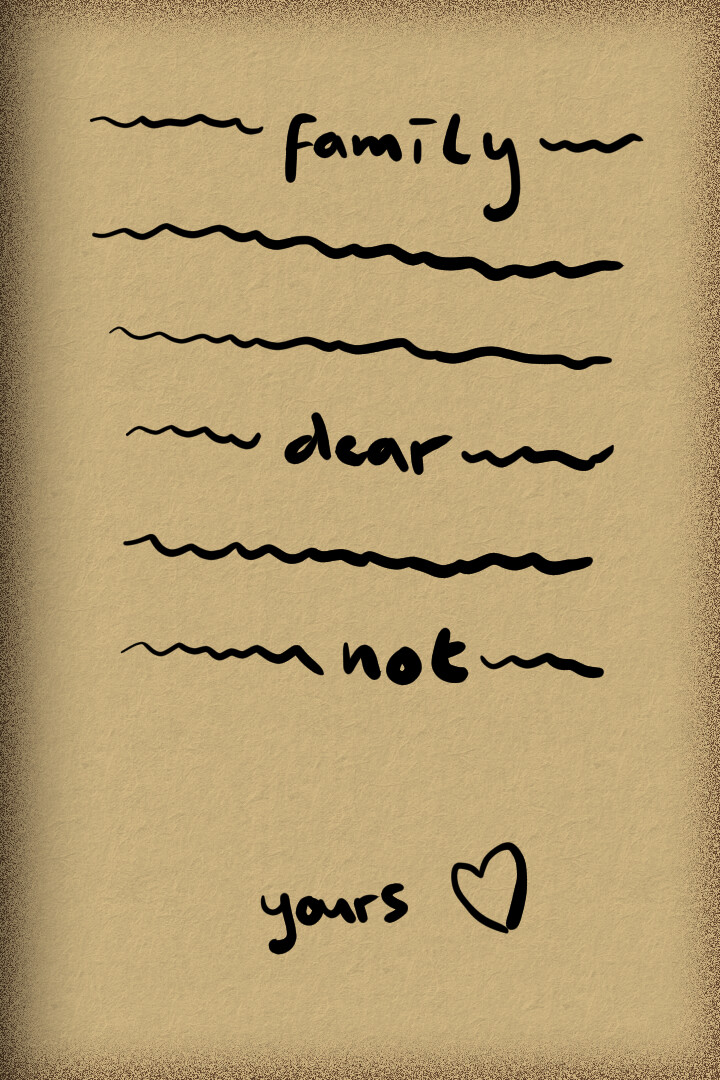 family
dear
not
yours